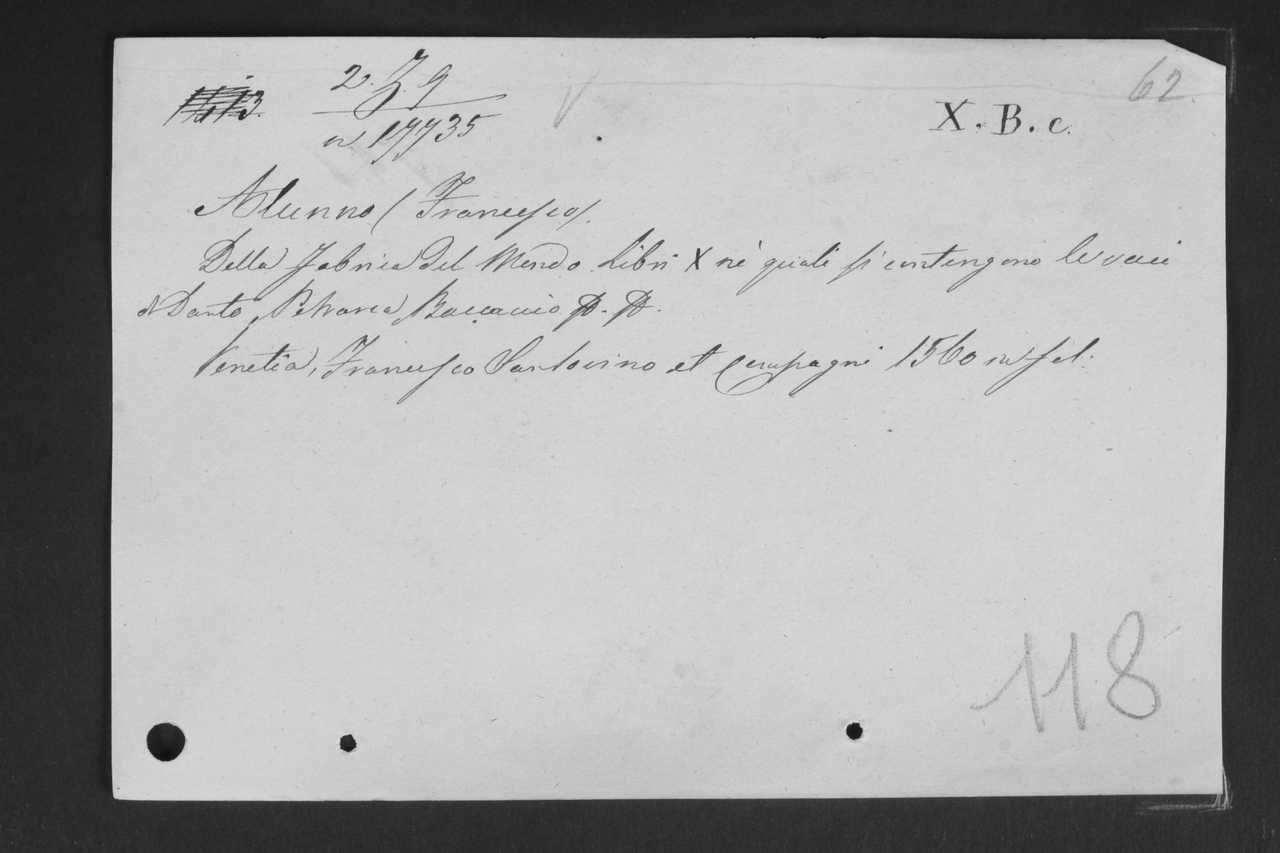 2. J 9
n 17735
62.
X. B. c.
Alunno (Francesco).
Della fabrica del Mondo. Libri X ne' quali si contengono le voci
di Dante, Petrarca, Boccaccio
Venetia, Francesco Sansovino et compagni 1560 in fol.
118